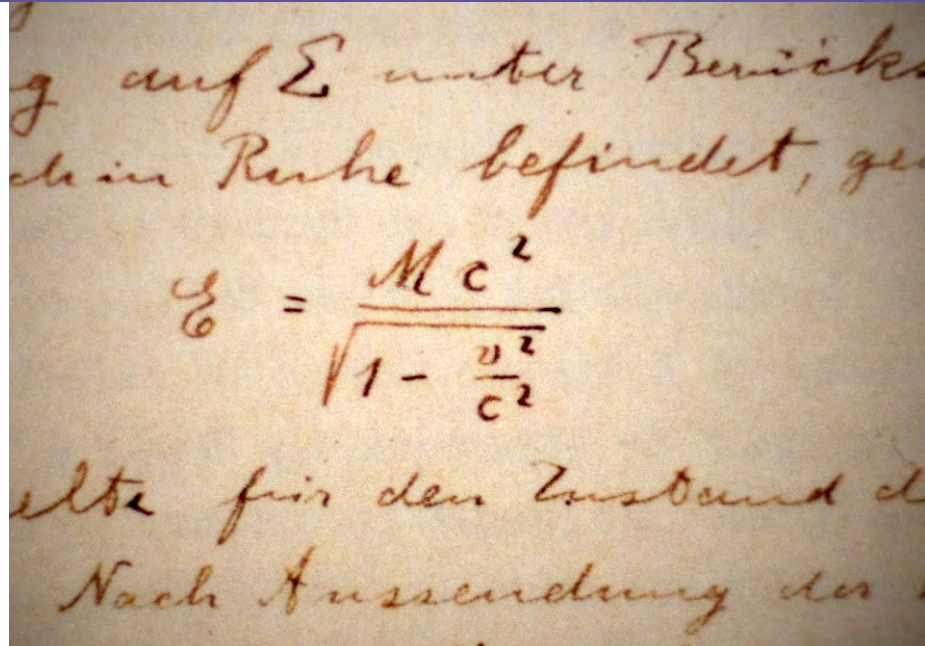 g auf Σ unter Berücks
ch in Ruhe befindet, ge
E = Mc² / √(1 - v²/c²)
elte für den Zustand d
Nach Aussendung der